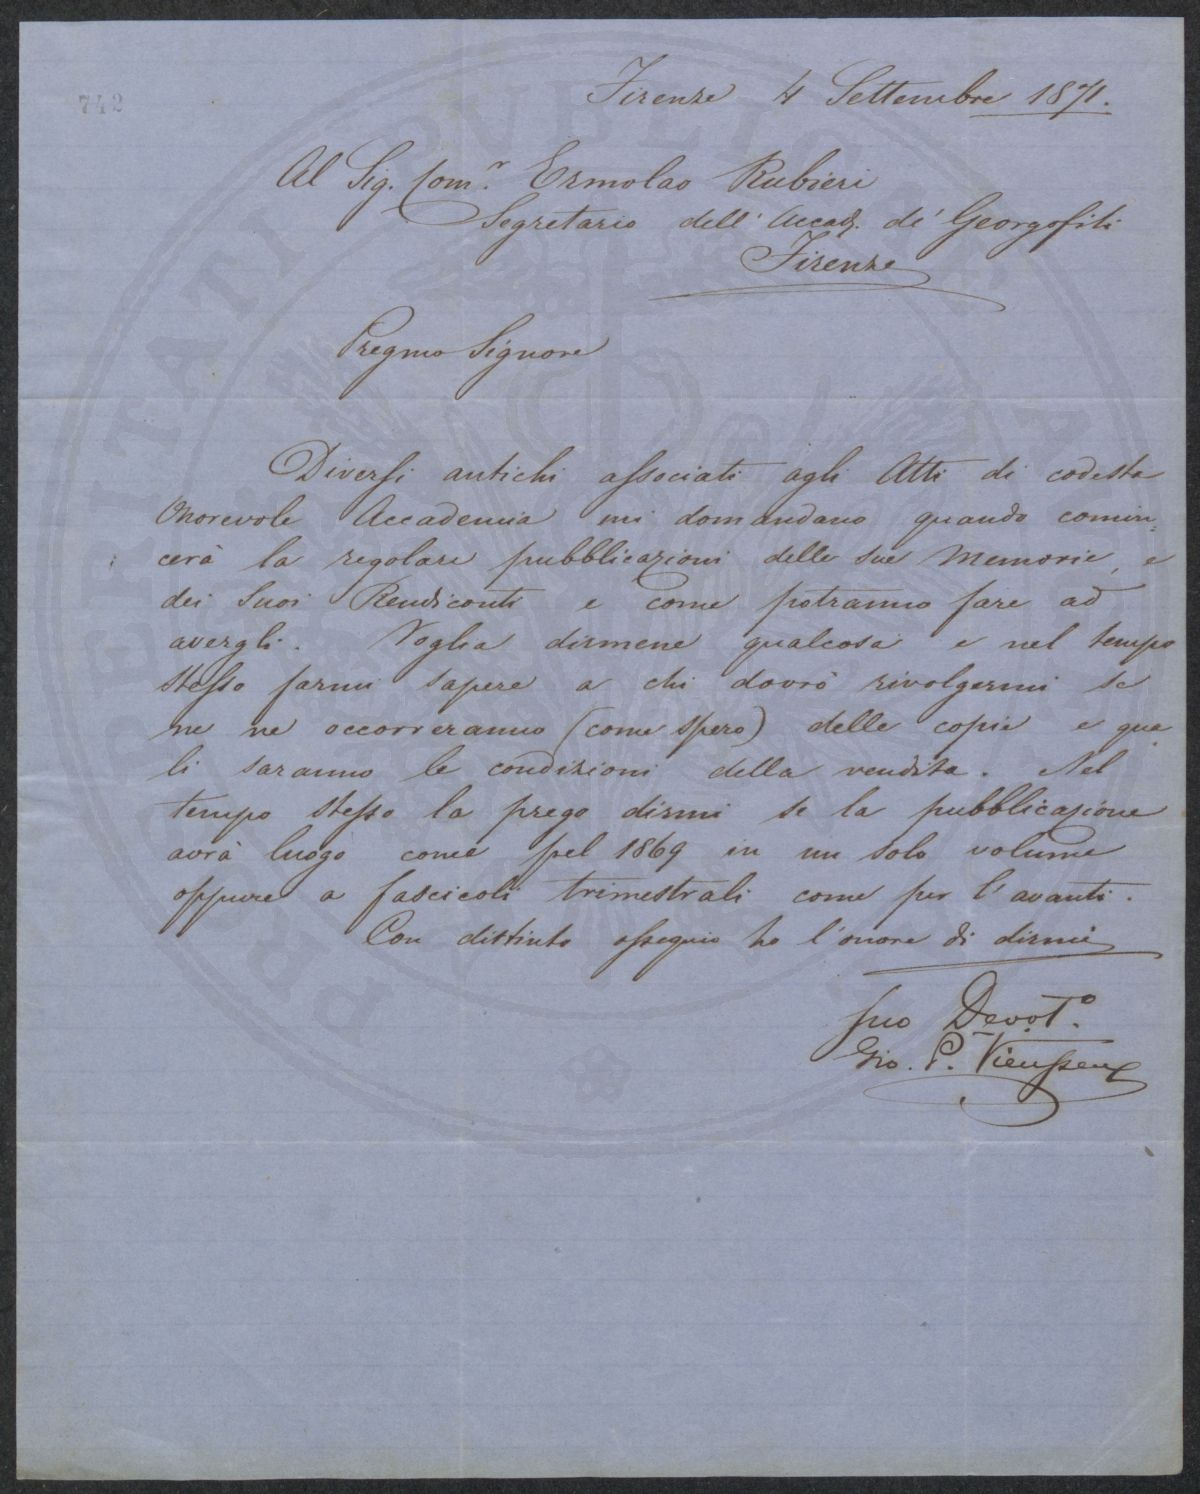 742
Firenze 4 Settembre 1871.
Al Sig. Com.r Ermolao Rubieri
Segretario dell' Accad. de' Georgofili
Firenze
Pregmo Signore
Diversi antichi associati agli Atti di codesta
Onorevole Accademia mi domandano quando comin=
cerà la regolare pubblicazioni delle sue Memorie, e
dei Suoi Rendiconti e come potranno fare ad
avergli. Voglia dirmene qualcosa e nel tempo
stesso farmi sapere a chi dovrò rivolgermi se
me ne occorreranno (come spero) delle copie e qua
li saranno le condizioni della vendita. Nel
tempo stesso la prego dirmi se la pubblicazione
avrà luogo come pel 1869 in un solo volume
oppure a fascicoli trimestrali come per l'avanti.
Con distinto ossequio ho l'onore di dirmi
Suo Devot.o
Gio. P. Vieusseux
PROSPERITATI PUBLICAE AUGENDAE